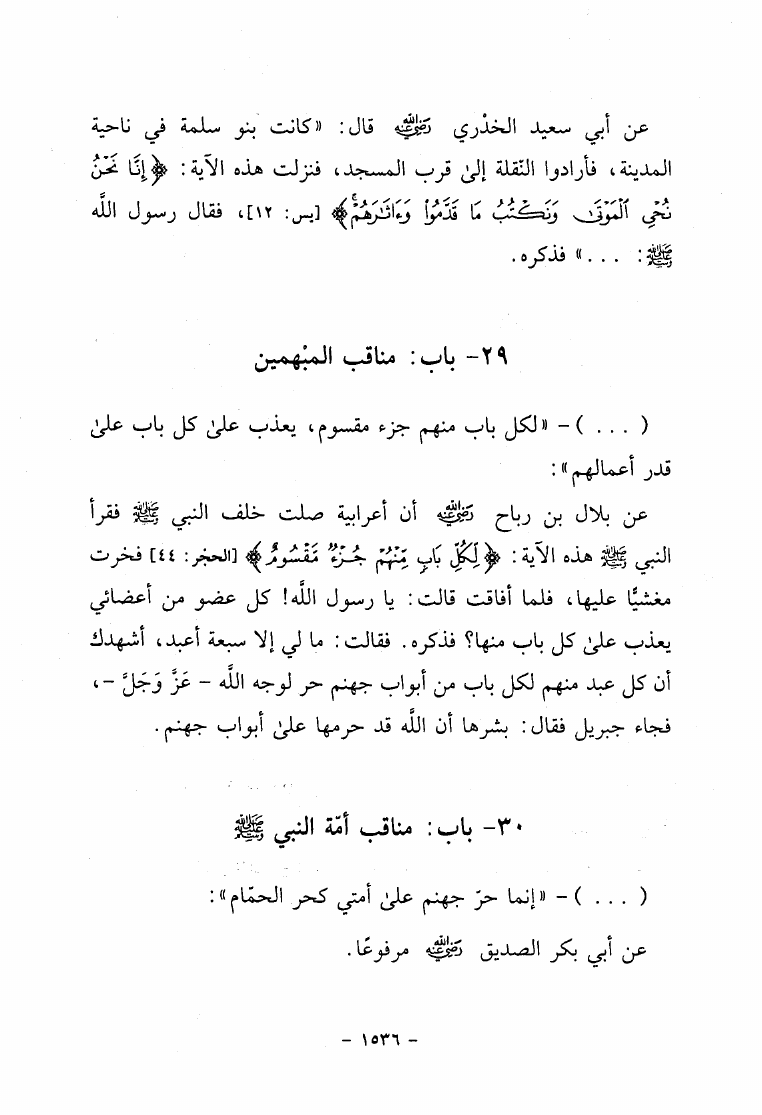 عن أبي سعيد الخدْري رضي الله عنه قال: «كانت بنو سلمة في ناحية
المدينة، فأرادوا النّقلة إلىٰ قرب المسجد، فنزلت هذه الآية: ﴿إِنَّا نَحْنُ
نُحْيِ الْمَوْتَىٰ وَنَكْتُبُ مَا قَدَّمُوا۟ وَءَاثَٰرَهُمْ﴾ [يس: ١٢]، فقال رسول اللَّه
ﷺ: ...» فذكره.
٢٩- باب: مناقب المبْهمين
( ... )- «لكل باب منهم جزء مقسوم، يعذب علىٰ كل باب علىٰ
قدر أعمالهم»:
عن بلال بن رباح رضي الله عنه أن أعرابية صلت خلف النبي ﷺ فقرأ
النبي ﷺ هذه الآية: ﴿لِكُلِّ بَابٍ مِّنْهُمْ جُزْءٌ مَّقْسُومٌ﴾ [الحجر: ٤٤] فخرت
مغشيًّا عليها، فلما أفاقت قالت: يا رسول اللَّه! كل عضو من أعضائي
يعذب علىٰ كل باب منها؟ فذكره. فقالت: ما لي إلا سبعة أعبد، أشهدك
أن كل عبد منهم لكل باب من أبواب جهنم حر لوجه اللَّه - عَزَّ وَجَلَّ -،
فجاء جبريل فقال: بشرها أن اللَّه قد حرمها علىٰ أبواب جهنم.
٣٠- باب: مناقب أمّة النبي ﷺ
( ... )- «إنما حرّ جهنم علىٰ أمتي كحر الحمّام»:
عن أبي بكر الصديق رضي الله عنه مرفوعًا.
- ١٥٣٦ -